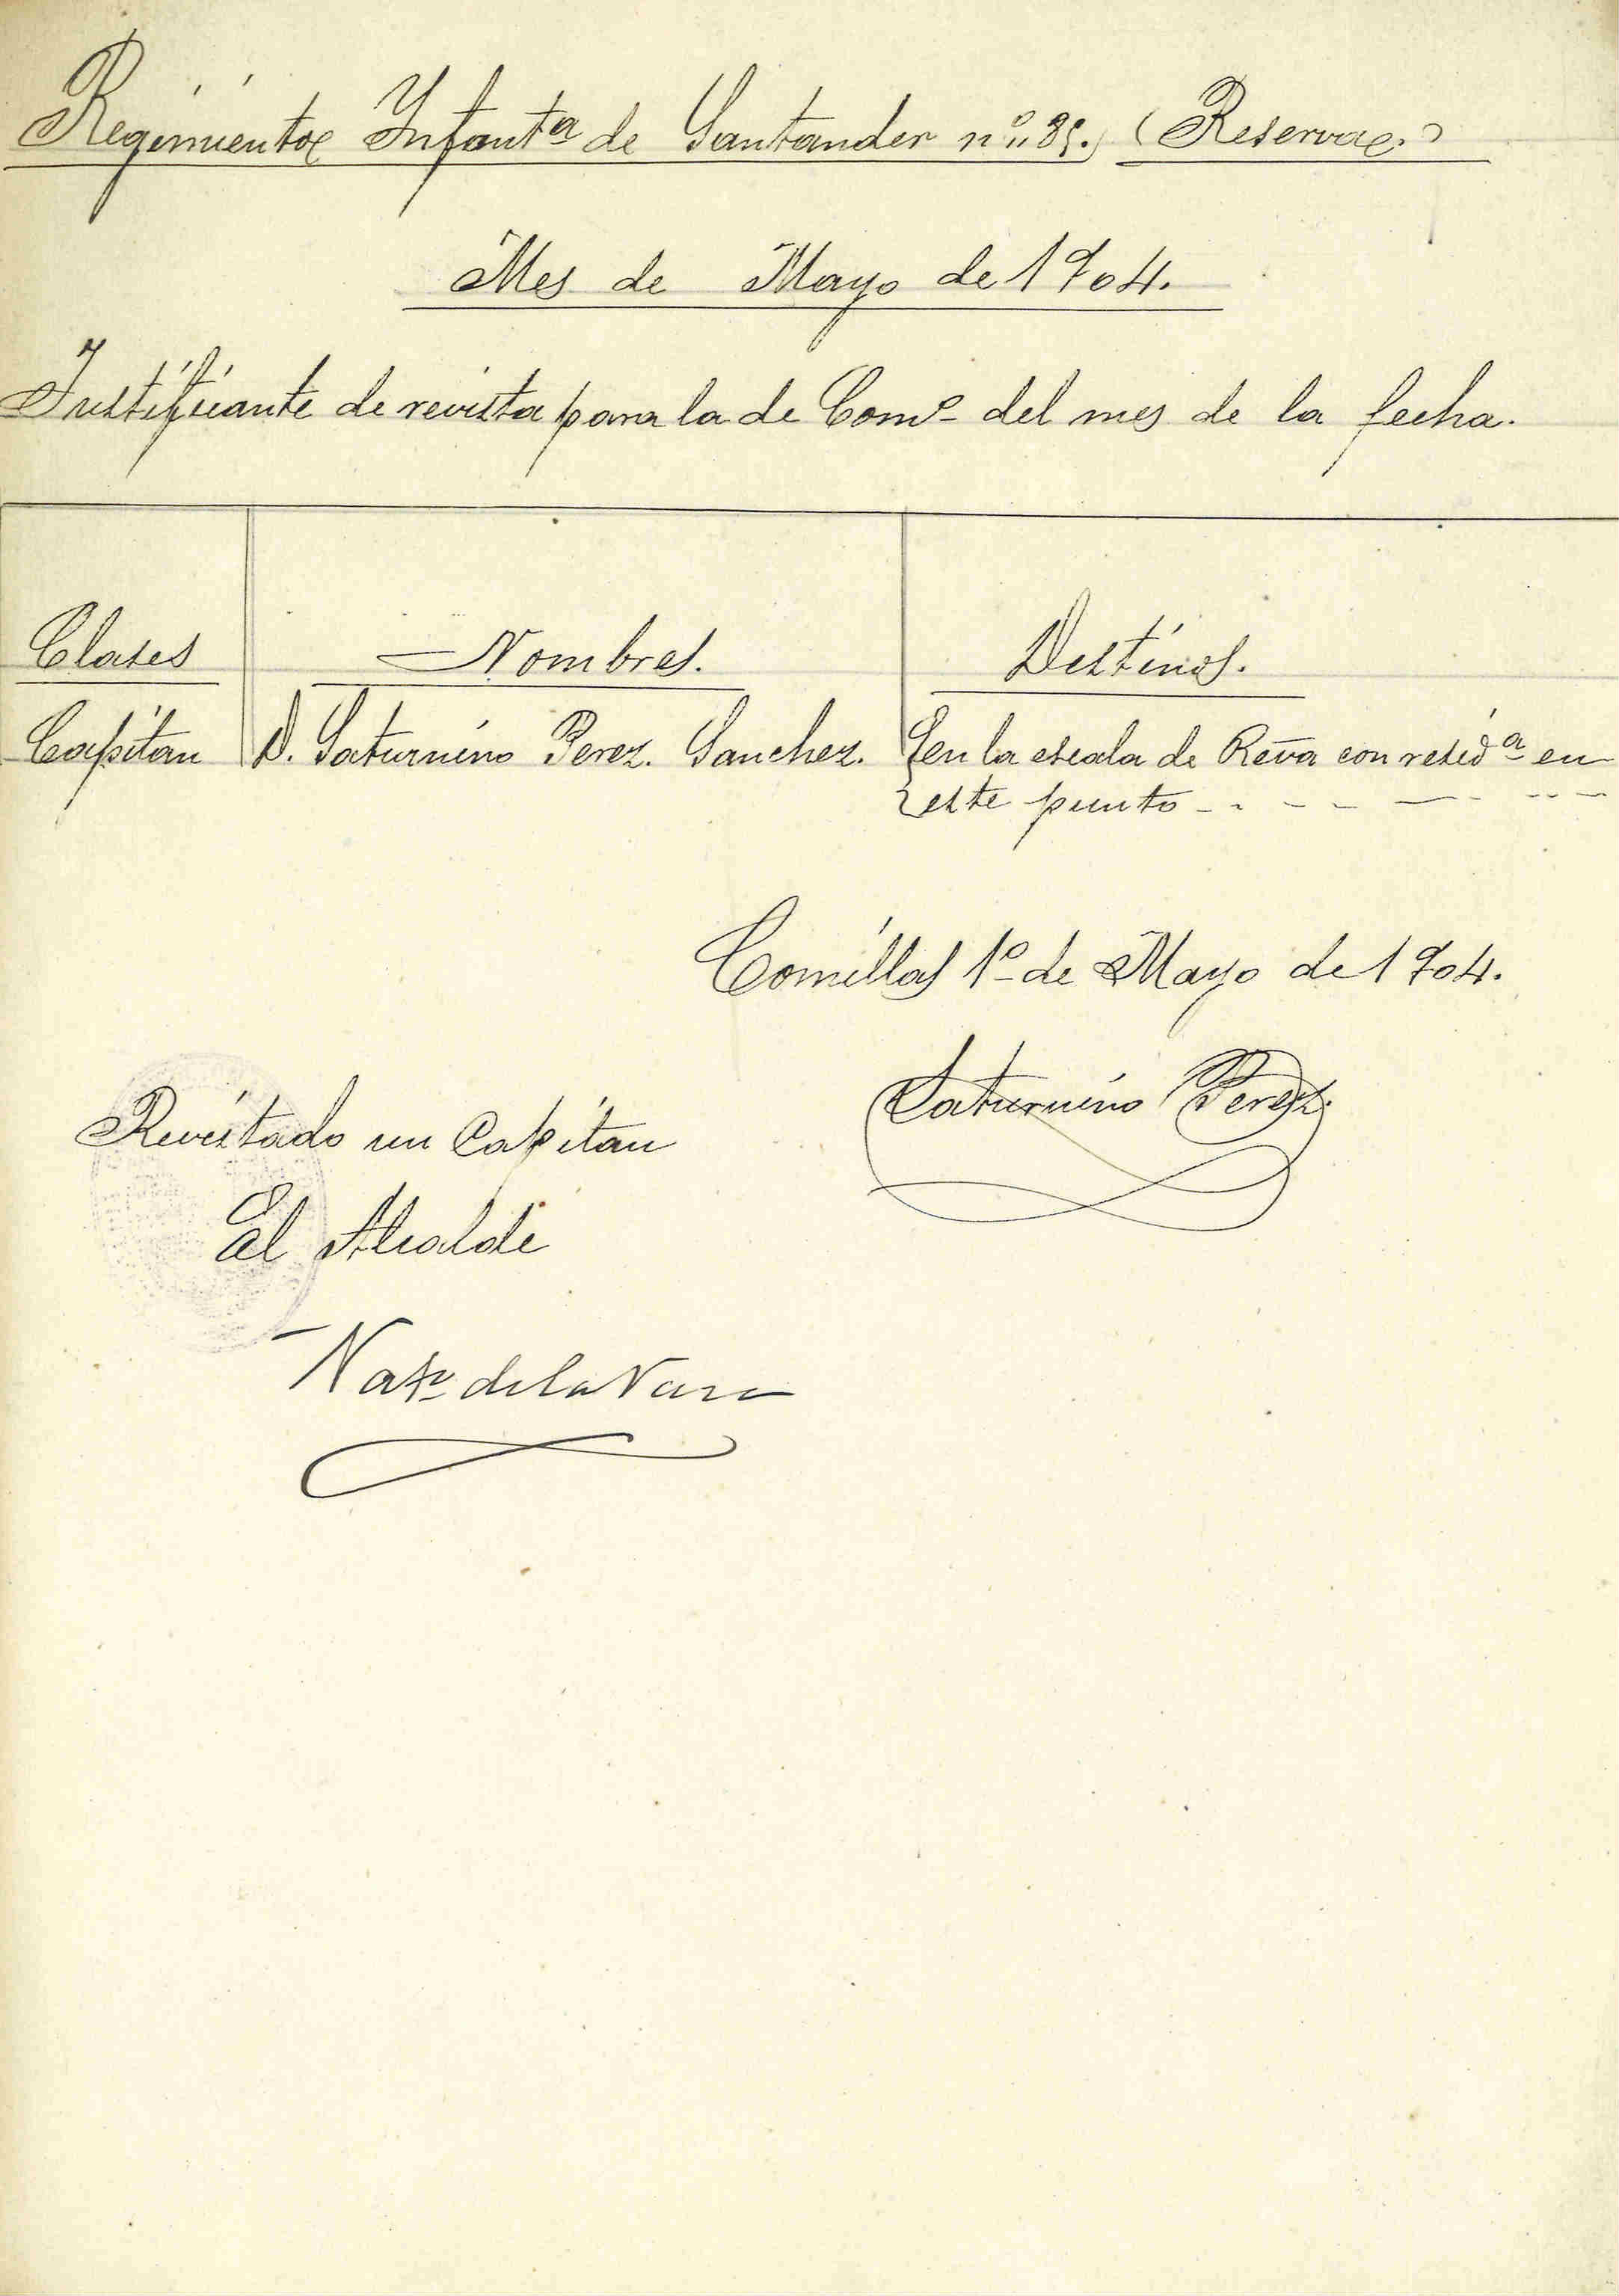 Regimiento Infantª de Santander nº 85. (Reserva.)
Mes de Mayo de 1904.
Justificante de revista para la de Comº del mes de la fecha.
Clases Nombres. Destinos.
Capitan D. Saturnino Perez. Sanchez. En la escala de Rêva con residª en
este punto
Comillas 1º de Mayo de 1904.
Saturnino Perez.
Revistado un Capitan
El Alcalde
de la